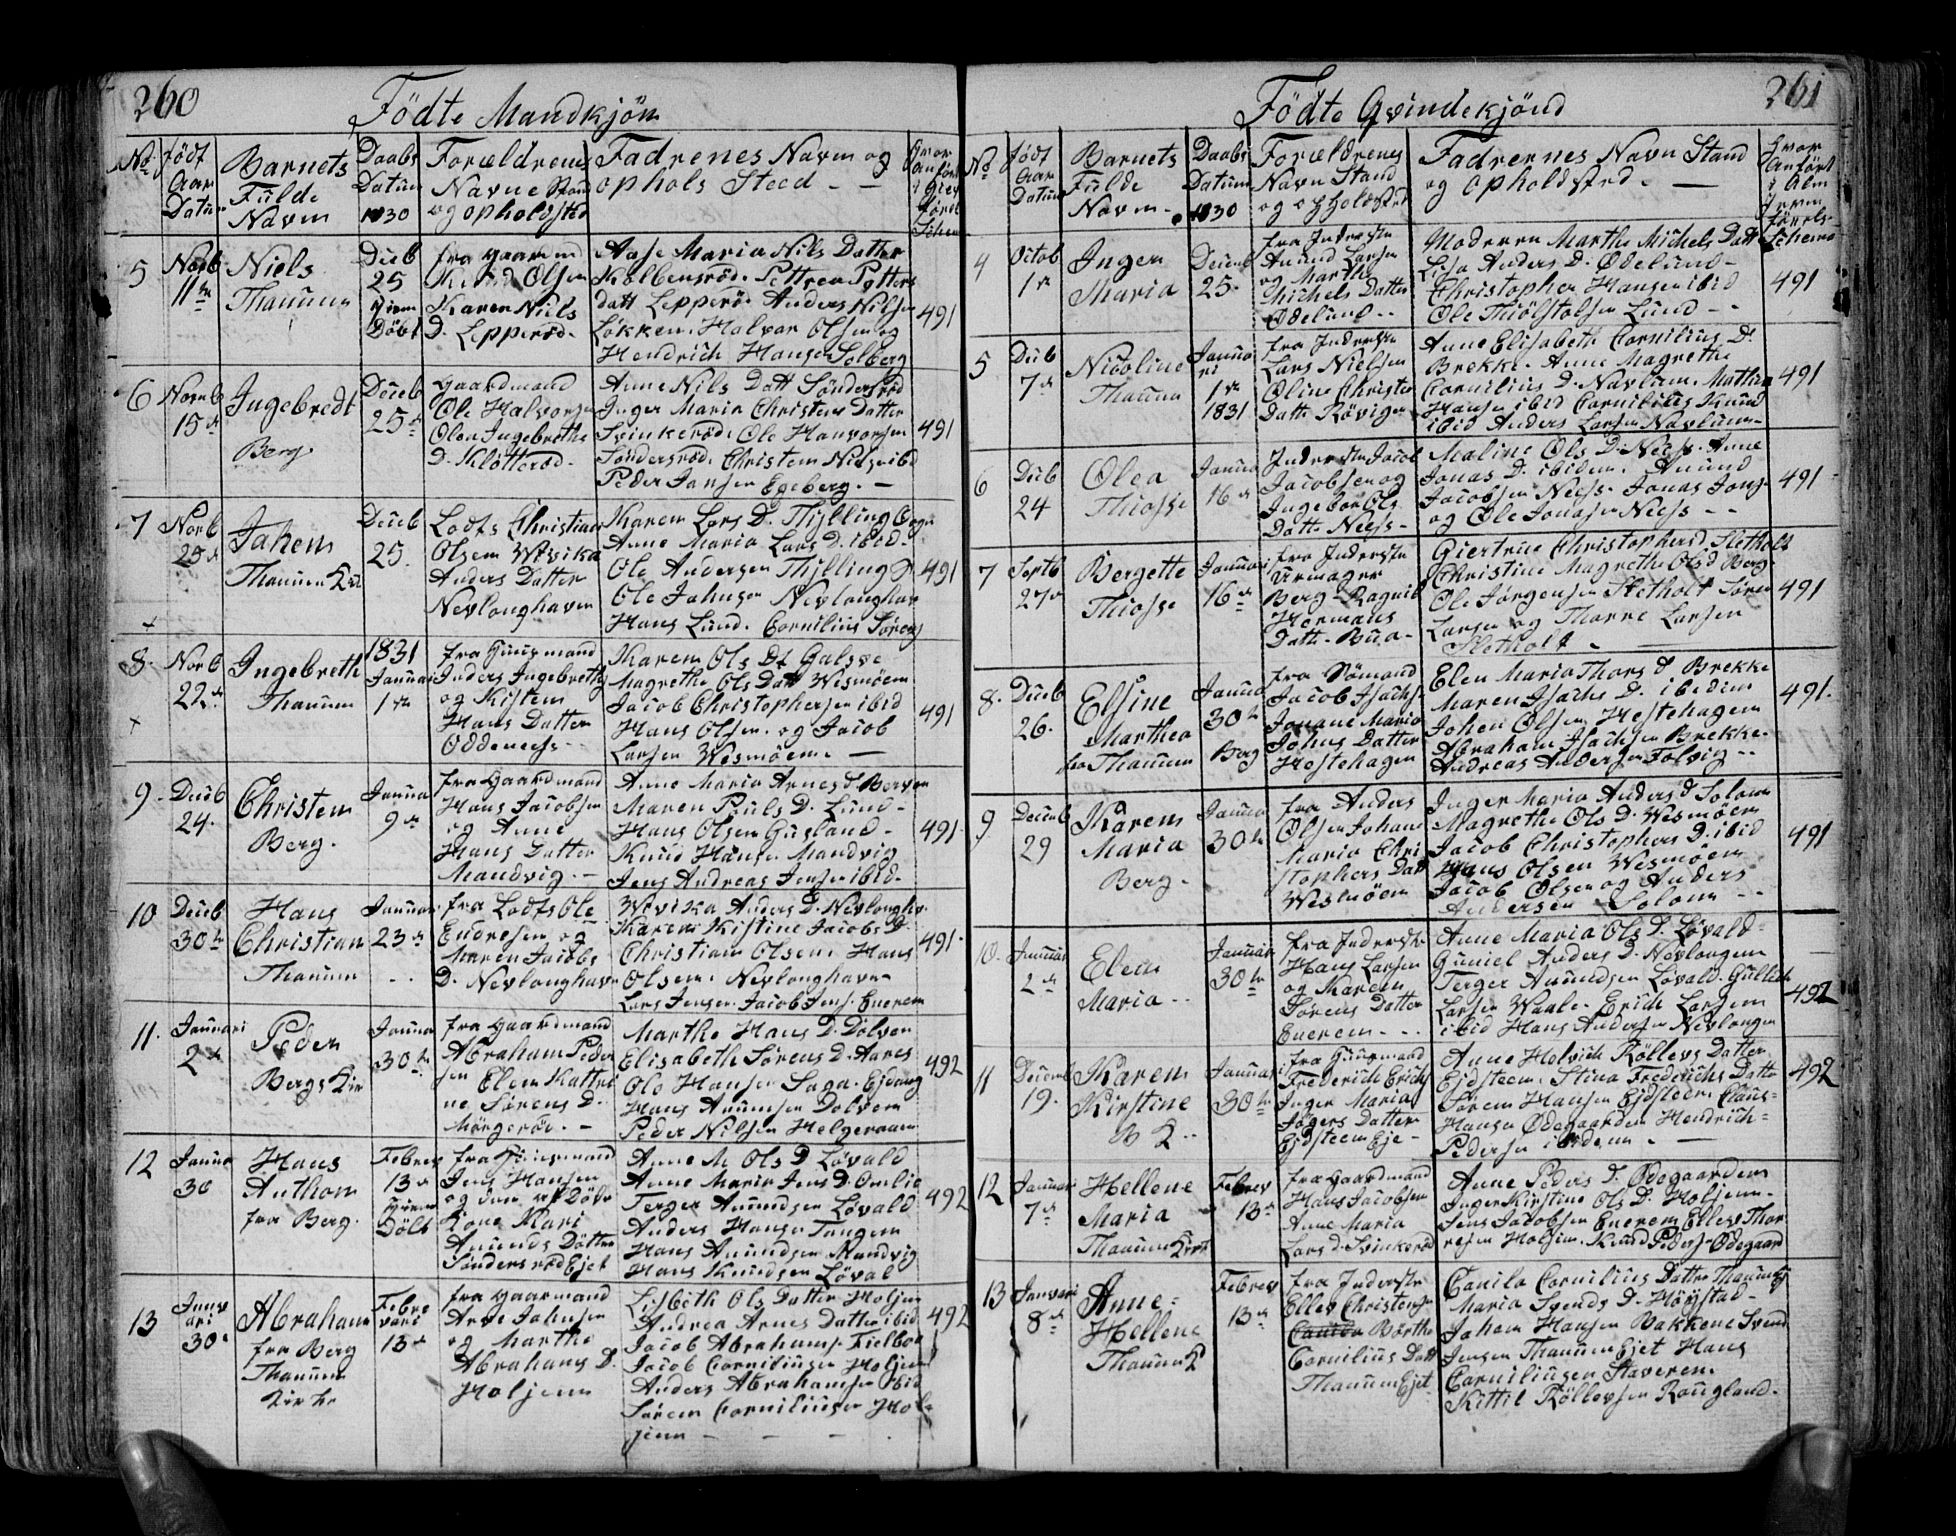 260
Födte Mandkjön
No
födt Aar Datum
Barnets Fulde Navn
Daabs Datum 1830
Forældrenes Navne Stand og opholdsted
Fadrenes Navn og
ophols Steed - —
5
Novb 11te
Niels
Thaunum
Decb 25
hjem Döbt
fra Gaardmd
Knud Olsen
Karen Niels
D. Lepperöd.
Aase Maria Nils Datter
Kolbensröd. Pettrea Petters
Datt Lepperö. Anders Nilsen
Løkken. Halvar Olsen og
Hendrich Hansen Solberg
491
6
Novb 15de
Ingebredt
Berg
Deceb 25de
Gaardmand
Ole Halvorsen
Olea Ingebreths
D. Klötteröd.
Anne Nils Datt Söndersröd
Inger Maria Christens Datter
Svinkeröd. Ole Hanvorsen
Söndersröd. Christen Nilsen ibd
Peder Jansen Egeberg. —
491
7
Novb
Jahen
Thaunum
Deceb 25.
Lodts Christian
Olsen Wivika
Anders Datter
Nevlonghaven
Karen Lars D. Thylling
Anne Maria Lars D. ibid.
Ole Andersen Thylling
Ole Jahnsen Nevlonghav
Hans Lund. Cornilius Sörens
491
8.
Novb 22de
Ingebreth
Thaunum
1831
Januari 1te
fra Huusmand
Anders Ingebreths
og Kisten
Hans Datter
Oddeness.
Karen Ols Dt
Magrethe Ols Datt Wismöen
Jacob Christophersen ibid
Hans Olsen. og Jacob
Larsen Wesmöen. —
491
9.
Deceb 24.
Christen
Berg.
Janua 9de
fra Gaardmand
Hans Jacobsen
og Anne
Hans Datter
Mandvig. —
Anne Maria Arnes D. Berven
Maren Pauls D. Lund -
Hans Olsen Gusland -
Knud Hansen Mandvig
Jens Andreas Jensen ibid.
491.
10
Deceb 30te
Hans
Christian
Thaunum
Januari 23de
fra Lodts Ole
Endresen og
Maren Jacobs
D. Nevlonghavn
Wivika Anders D. Nevlonghv
Karen Kistine Jacobs D.
Christian Olsen. Hans
Olsen. Nevlonghavn
Lars Jensen. Jacob Jens. Everen
491.
11.
Januari 2de
Peder
Bergs Kir
Janua 30te
fra Gaardmand
Abraham Peder
sen Elen Kattri
ne Sörens D.
Mörgeröd. —
Marthe Hans D. Dölven
Elisabeth Sörens D. Aares
Ole Hansen Saga. Ejdang
Hans Anunsen Dolven
Peder Nilsen Helgeraaen
492
12
Janua 30
Hans
Anthon
fra Berg.
Febrev 13de
hjem Döbt
fra Huusmand
Jens Hansen
og
Kone Mari
Anunds Datter
Söndersröd Ejet
Anne M. Ols D. Lövald
Anne Maria Jens D. Omlie
Terger Anundsen Lövald
Anders Hansen Tangen
Hans Anundsen Mandvig
Hans Knudsen Lövald
492
13
Januari 30
Abraham
fra Berg
Thaunum
Kirke
Febrevari 13de
fra Gaardmand
Arve Jahnsen
og Marthe
Abrahams D.
Holjen
Lisbeth Ols Datter Holjen
Andrea Arnes Datter ibid
Jacob Abrahamsen
Jacob Corniliusen Holjen
Anders Abrahamsen ibid
Sören Corniliusen Hol-
jenn — — —
492
261
Födte Qvindekjönd
No
födt Aar Datum
Barnets Fulde Navn -
Daabs Datum 1830
Forældrenes Navn Stand og opholdsted
Fadrernes Navn Stand
og opholdsted. —
hvor Anfört i Alm
4
Octob 1te
Inger
Maria
Decemb 25.
fra Inderste
Anund Larsen
og Marthe
Michels Datter
Ödelund. -
Moderen Marthe Michels Datt
Lisa Anders D. Ödelund -
Christopher Hansen ibid
Ole Thiölstolsen Lund -
491
5
Decb 7de
Nicoline
Thaunum
Januari 1te 1831
fra Inderste
Lars Nielsen
Oline Christe
Datt. Rövigen
Anne Elisabeth Cornilius D.
Brekke. Anne Magrethe
Cornilius D. Navlum. Mathias
Hansen ibid Cornilius Knud
ibid Anders Larsen Navlum -
491
6
Decb 24
Olea
Thiosse
Janua 16de
Inderste Jacob
Jacobsen og
Ingebor Ols
Datt. Neess -
Maline Ols D. Neess. Anne
Jonas D. ibidem. Anund
Jacobsen Neess. Jonas Jons
og Ole Jonasen Neess - -
491
7
Septb 27de
Bergette
Thiosse
Januari 16de
fra Inderste
Berg - Ragnil
Hermans
Datt. Bua -
Giertrue Christophersd. Stetholt
Christine Magrethe Olsd Berg.
Ole Jörgensen Stetholt Sören
Larsen og Thorre Larsen
Stetholt -
491
8.
Deceb 26.
Elsine
Marthea
fra Thaunum
Janua 30te
Berg
fra Sömand
Jacob Isachsen
Johane Maria
Johns Datter
Hestehagen
Elen Maria Thors D. Brekke
Maren Isachs D. ibidim
Johen Olsen Hestehagen
Abraham Isachsen Brekke.
Andreas Andersen Folvig - -
491.
9
Decemb 29
Karen
Maria
Berg.
Janua 30te
fra Anders
Olsen Johan
Maria Chri
stophers Datt
Wesmöen
Inger Maria Anders D Solom
Magrethe Ols D. Wesmöen
Jacob Christophers D. ibid
Hans Olsen Wesmöen
Jacob Olsen og Anders
Andersen Solom - -
491
10.
Januar 2de
Elen
Maria - -
Januar 30te
fra Inderste
Hans Larsen
og Maren
Sörens Datter
Everen - - -
Anne Maria Ols D. Lövald -
Guniel Anders D. Nevlongen
Terger Anundsen Lövald. Gullich
Larsen Waale. Erich Larsen
ibid Hans Andersen Nevlongen
492
11
Decemb 19.
Karen
Kirstine
B K. -
Januar 30te
fra Huusmand
Frederich Erichs
Inger Maria
Jögers Datter
Ejdsteen Eje -
Anne Helvich Röllevs Datter
Ejdsteen. Stina Frederichs Datte
Sören Hansen Ejdsteen. Claus -
Hansen Ödegaarden Hendrich -
Pedersen ibidem. —
492
12
Januari 7de
Hellene
Maria
Thaunum Kirk
Febrev 13de
fra Gaardmand
Hans Jacobsen
Anne Maria
Lars D. Svinkeröd
Anne Peders D. Ödegaarden
Inger Kirstine Ols D. Holjenn -
Jens Jacobsen Everen Ellev Thor
resen Holjen. Knud Peders. Ödegaard
13
Januari 8de
Anne -
Hellene
Thaunum K
Febrev 13de
fra Inderste
Ellev Christensen
Börthe
Cornilius Datt
Thaunum Ejet
Canila Cornilius Datter Thaunum Ej
Maria Svends D. Höystad -
Jahen Hansen Bakkene Svend
Jensen Thaunum Ejet Hans
Corniliusen Staveren.
Kittil Röllevsen Rougland.